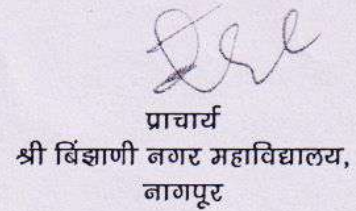 प्राचार्य
श्री बिंझाणी नगर महाविद्यालय,
नागपूर